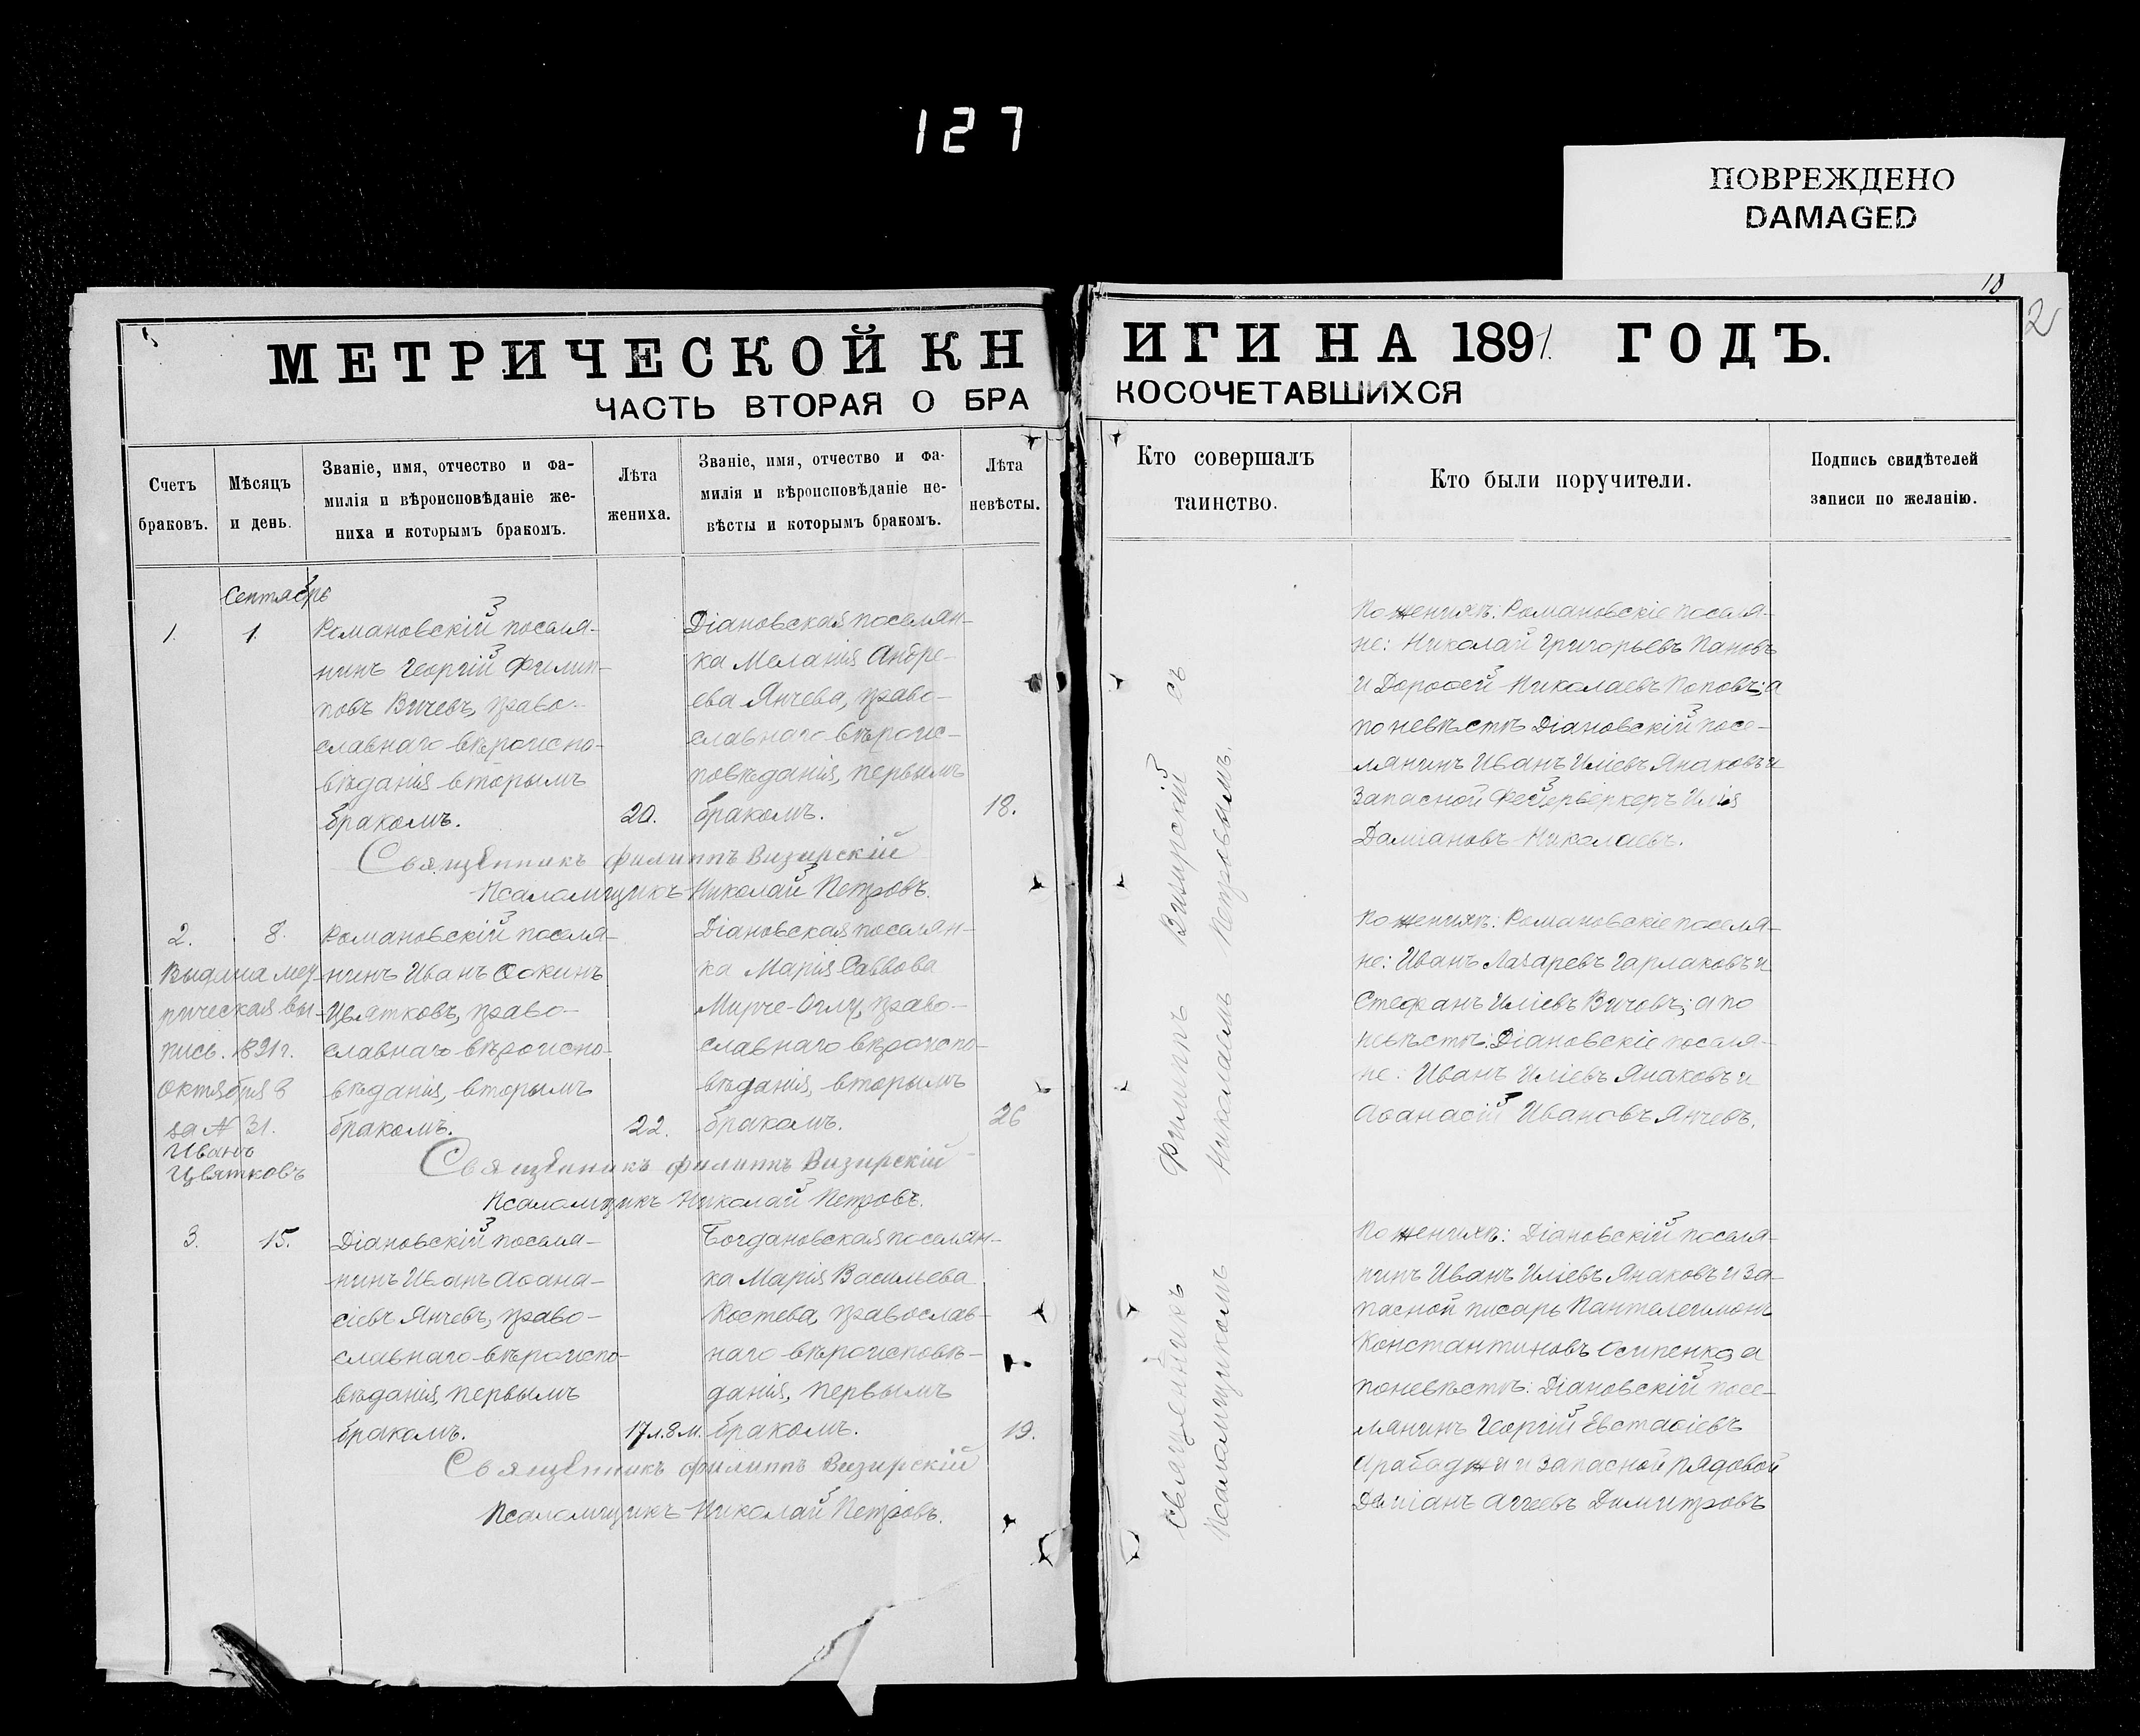 127
ПОВРЕЖДЕНО
DAMAGED
18
2
МЕТРИЧЕСКОЙ КНИГИ НА 1891 ГОДЪ.
ЧАСТЬ ВТОРАЯ О БРАКОСОЧЕТАВШИХСЯ
Счетъ
браковъ.
Мѣсяцъ
и день.
Званіе, имя, отчество и фа-
милія и вѣроисповѣданіе же-
ниха и которымъ бракомъ.
Лѣта
жениха.
Званіе, имя, отчество и фа-
милія и вѣроисповѣданіе не-
вѣсты и которымъ бракомъ.
Лѣта
невѣсты.
Кто совершалъ
таинство.
Кто были поручители.
Подпись свидѣтелей
записи по желанію.
Сентябрь
1.
1
Романовскій поселя-
нинъ Георгій Филип-
повъ Вичевъ, право-
славнаго вѣроиспо-
вѣданія вторымъ
бракомъ.
20.
Діановская поселян-
ка Меланія Андре-
ева Янчева, право-
славнаго вѣроис-
повѣданія, первымъ
бракомъ.
18.
Священникъ Филиппъ Визирскій
Псаломщикъ Николай Петровъ.
По женихѣ: Романовскіе поселя-
не: Николай Григорьевъ Пановъ
и Дорофей Николаевъ Поповъ; а
по невѣстѣ Діановскій посе-
лянинъ Иванъ Иліевъ Янаковъ и
Запасной Фейерверкеръ Илія
Даміановъ Николаевъ.
2.
8.
Выдана мет-
рическая вы-
пись. 1891 г.
октября 8
за № 31.
Иванъ
Цвятковъ
Романовскій поселя-
нинъ Иванъ
Цвятковъ, право-
славнаго вѣроиспо-
вѣданія, вторымъ
бракомъ.
22.
Діановская поселян-
ка Марія Саввова
Мирче-Оглу, право-
славнаго вѣроиспо-
вѣданія, вторымъ
бракомъ.
26
Священникъ Филиппъ Визирскій
Псаломщикъ Николай Петровъ.
По женихѣ: Романовскіе поселя-
не: Иванъ Лазаревъ Гарлаковъ и
Стефанъ Иліевъ Вичовъ; а по
невѣстѣ: Діановскіе поселя-
не: Иванъ Иліевъ Янаковъ и
Аѳанасій Ивановъ Янчевъ.
3.
15.
Діановскій поселя-
нинъ Иванъ Аѳана-
сіевъ Янчевъ, право-
славнаго вѣроиспо-
вѣданія, первымъ
бракомъ.
17 л. 8 м.
Богдановская поселян-
ка Марія Васильева
Костева, православ-
наго вѣроисповѣ-
данія, первымъ
бракомъ.
19.
Священникъ Филиппъ Визирскій
Псаломщикъ Николай Петровъ.
По женихѣ: Діановскій поселя-
нинъ Иванъ Иліевъ Янаковъ и За-
пасной писарь Пантелеимонъ
Константиновъ Осипенко, а
по невѣстѣ: Діановскій посе-
лянинъ Георгій Евстафіевъ
Арабаджи и запасной рядовой
Даміанъ Аггеевъ Димитровъ
Священникъ Филиппъ Визирскій съ
Псаломщикомъ Николаемъ Петровымъ.